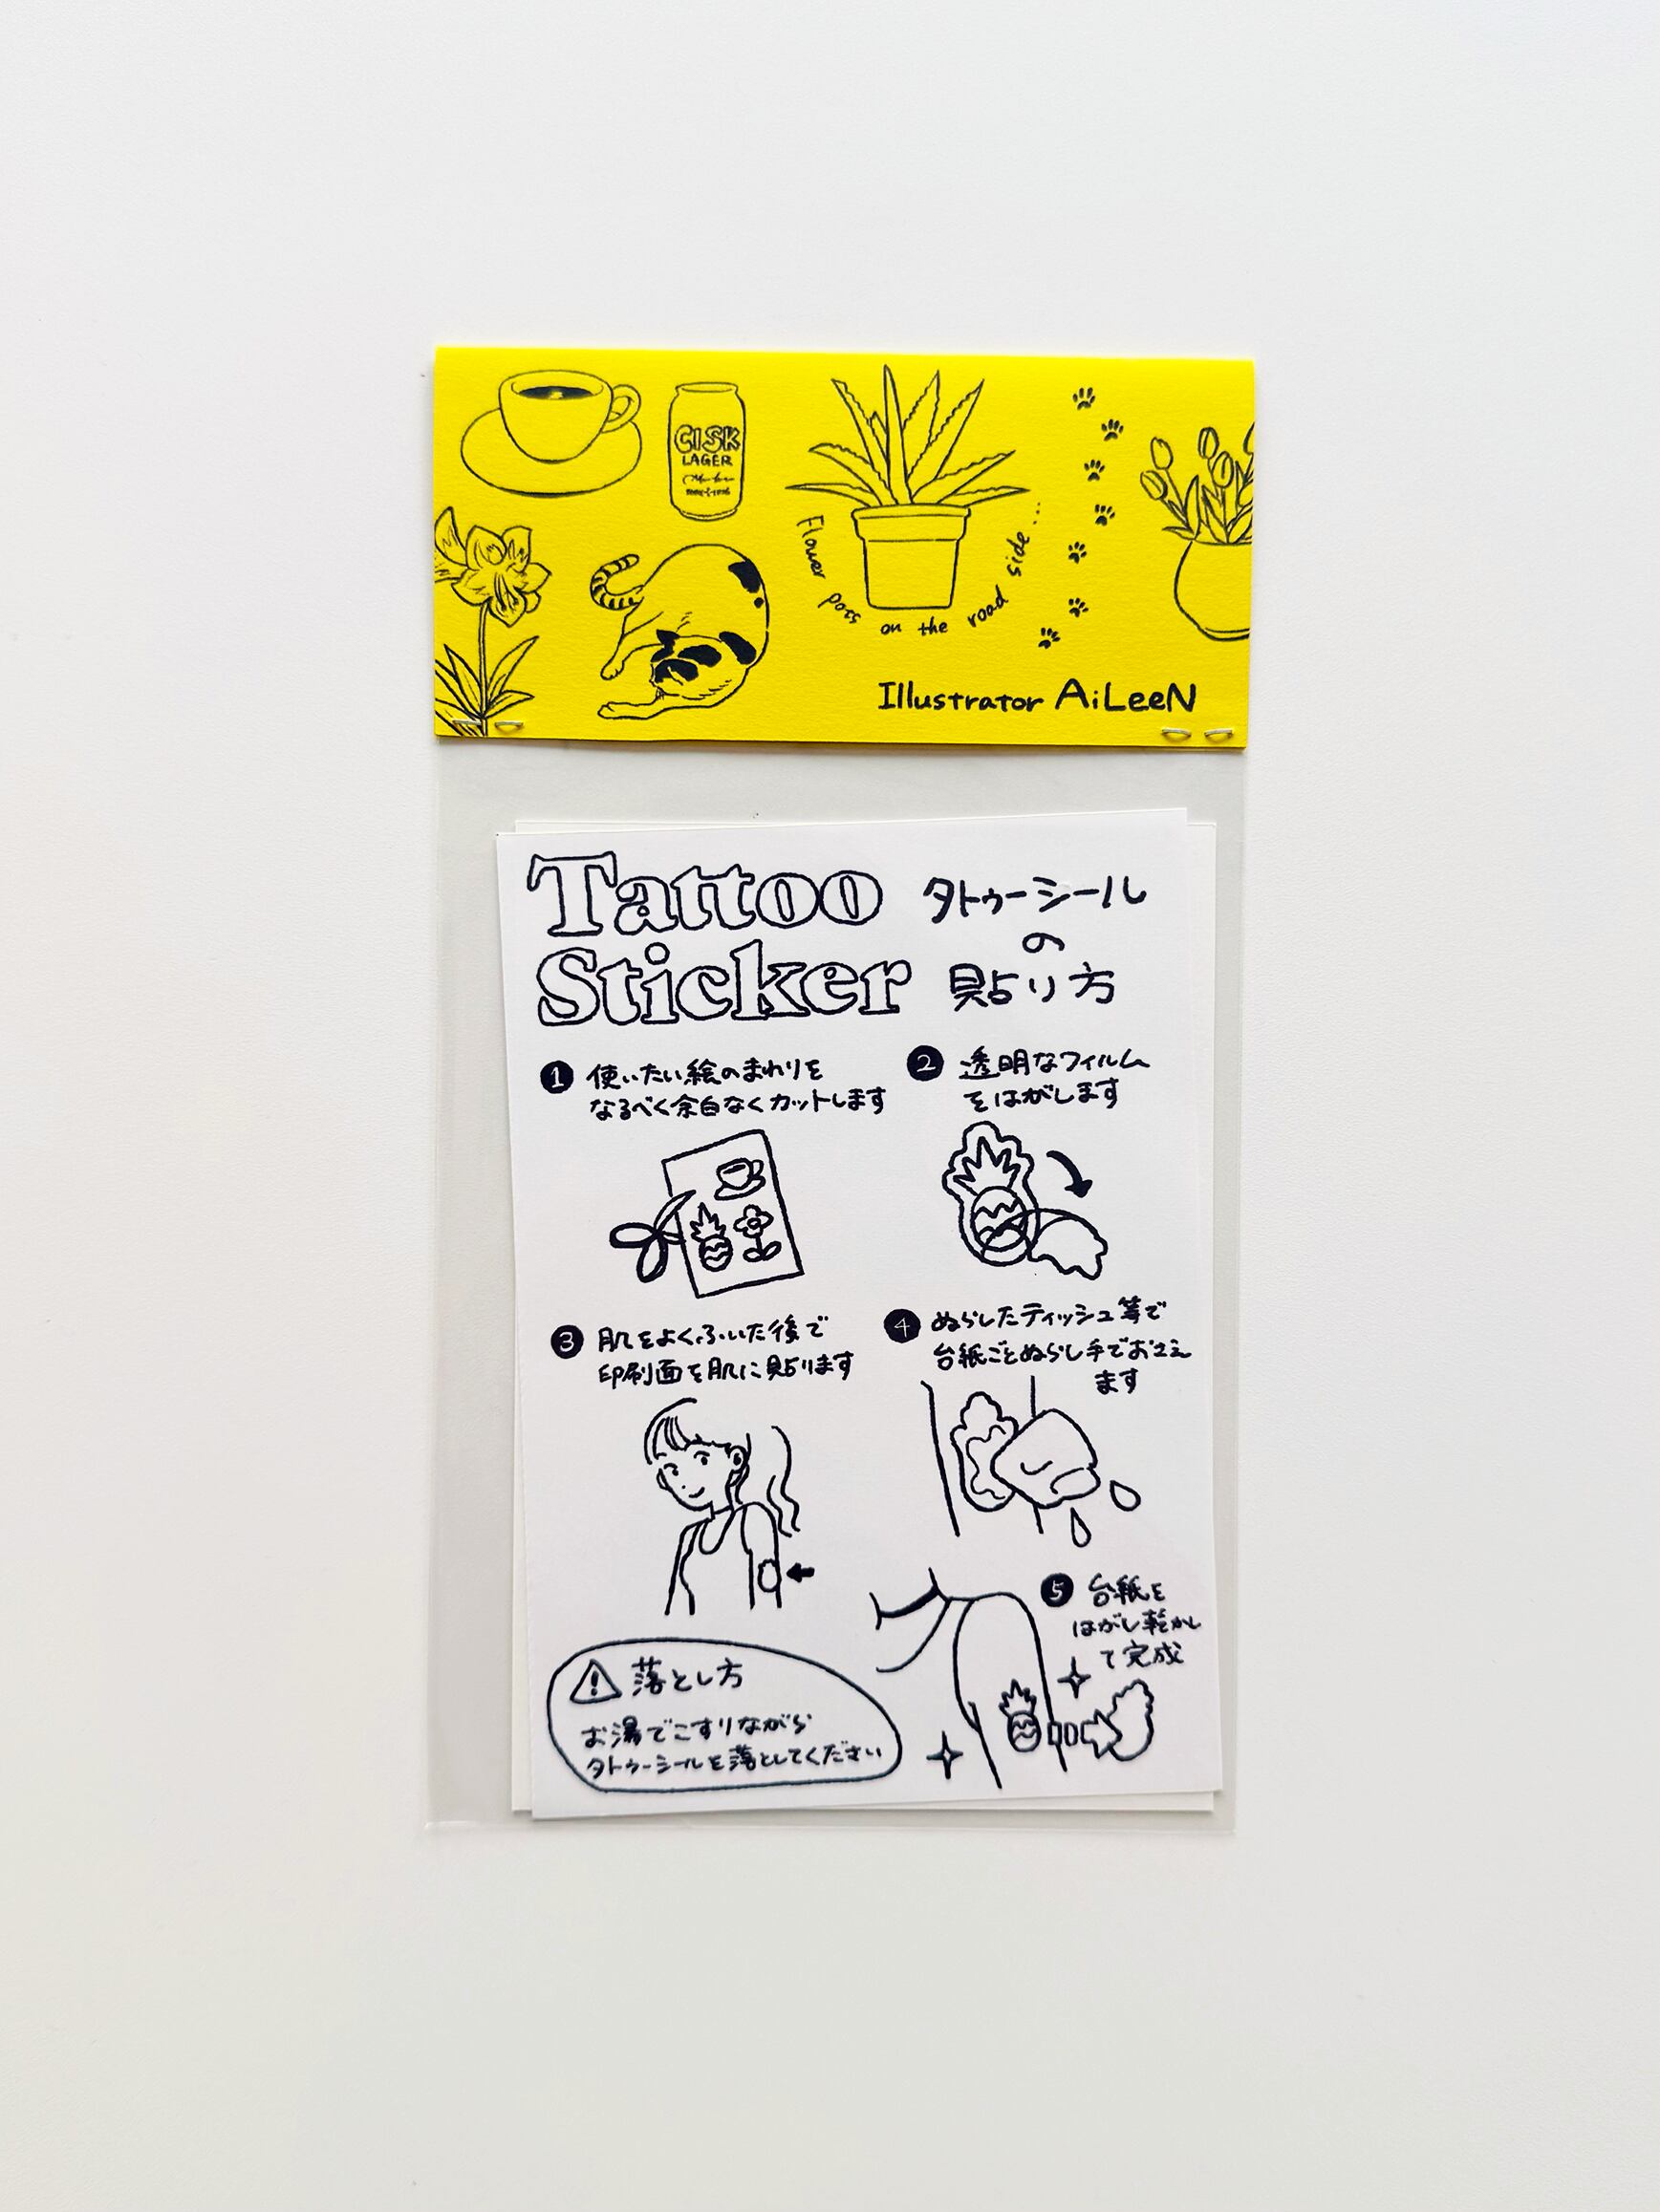 CISK
LAGER
Flower pots on the road side...
Illustrator AiLeeN
Tattoo
Sticker
タトゥーシール
の
貼り方
1 使いたい絵のまわりを
なるべく余白なくカットします
2 透明なフィルム
をはがします
3 肌をよくふいた後で
印刷面を肌に貼ります
4 ぬらしたティッシュ等で
台紙ごとぬらし手でおさえ
ます
5 台紙を
はがし乾かし
て完成
落とし方
お湯でこすりながら
タトゥーシールを落としてください